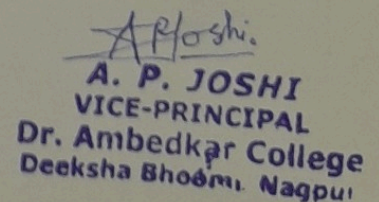 A P Joshi.
A. P. JOSHI
VICE-PRINCIPAL
Dr. Ambedkar College
Deeksha Bhoomi, Nagpur